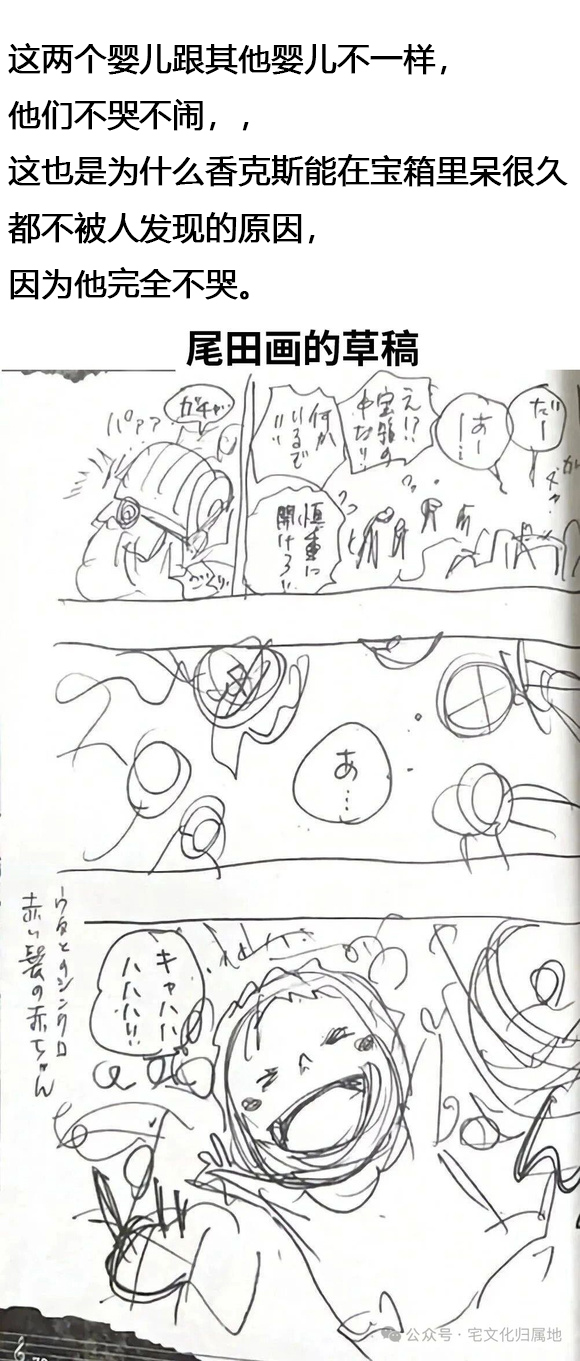 这两个婴儿跟其他婴儿不一样，
他们不哭不闹，，
这也是为什么香克斯能在宝箱里呆很久
都不被人发现的原因，
因为他完全不哭。
尾田画的草稿
だー
あー
え!?
宝箱の
中だ!!
何か
いるで
!!
慎重に
開けろ!!
ガチャ
パァァ
あ…
キャハハ
ハハハ!!
ウタとのシンクロ
赤い髪の赤ちゃん
公众号·宅文化归属地